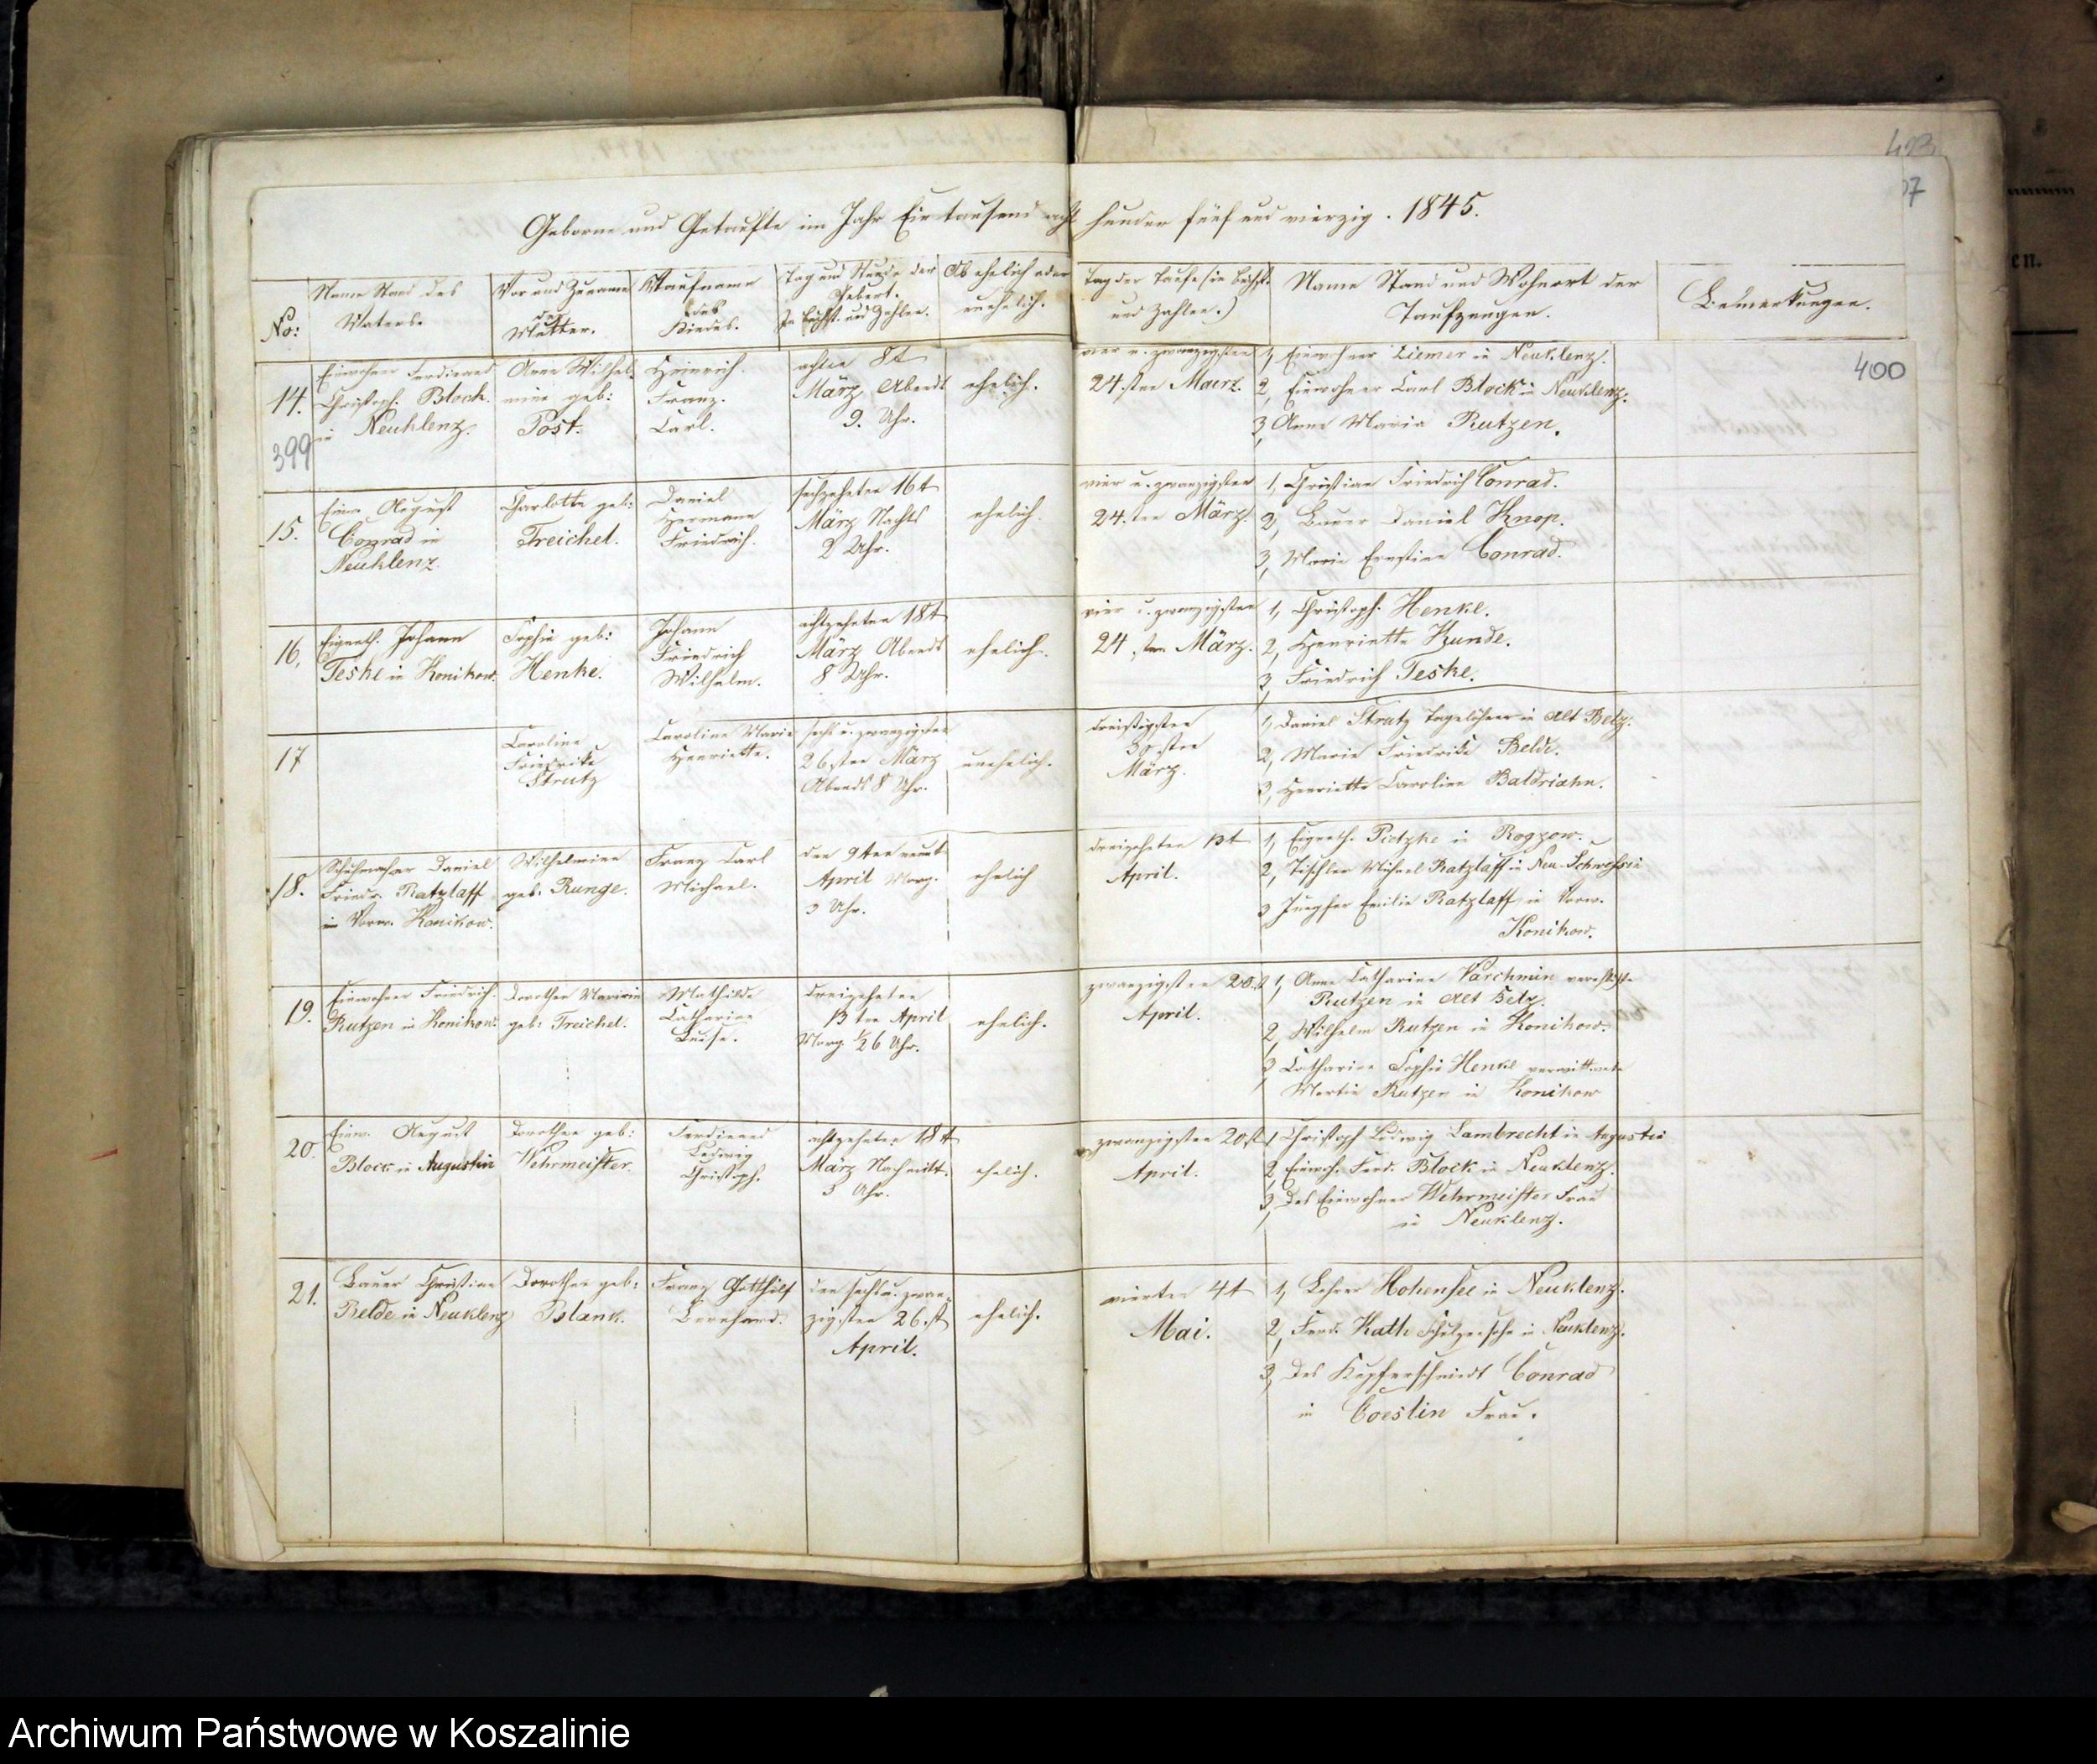 423
7
Geborne und Getaufte im Jahr Eintausend acht hunder fünf und vierzig. 1845.
No:
Name Stand des
Vaters.
Vor und Zuname
der
Mutter.
Taufname
des
Kindes.
Tag und Stunde der
Geburt.
In Buchst. und Zahlen.
Ob ehelich oder
unehelich.
Tag der Taufe (in Buchst.
und Zahlen.)
Name Stand und Wohnort der
Taufzeugen.
Bemerkungen.
14.
399
Einwohner Ferdinand
Christoph. Block.
in Neuklenz.
Anne Wilhel
mine geb:
Post.
Heinrich.
Franz.
Carl.
achten 8t
März Abends
9. Uhr.
ehelich.
vier u. zwanzigsten
24.sten Maerz.
1, Einwohner Ziemer in Neuklenz.
2, Einwohner Carl Block in Neuklenz.
3, Anne Maria Rutzen.
400
15.
Einw. August
Conrad in
Neuklenz.
Charlotte geb:
Treichel.
Daniel
Hermann
Friedrich.
sechzehnten 16t
März Nachts
2 Uhr.
ehelich.
vier u. zwanzigsten
24.ten März.
1, Christian Friedrich Conrad.
2, Bauer Daniel Knop.
3, Marie Ernstine Conrad.
16.
Eigenth. Johann
Teske in Konikow.
Sophie geb:
Henke.
Johann
Friedrich
Wilhelm.
achtzehnten 18t
März Abends
8 Uhr.
ehelich.
vier u. zwanzigsten
24 sten März.
1, Christoph. Henke.
2, Henriette Kunde.
3, Friedrich Teske.
17
Caroline
Friedrike
Strutz
Caroline Marie
Henriette.
sechs u. zwanzigsten
26sten März
Abends 8 Uhr.
unehelich.
dreißigsten
30sten
März.
1, Daniel Strutz Tagelöhner in Alt Belz.
2, Marie Friedrike Belde.
3, Henriette Caroline Baldriahn.
18.
Schuhmacher Daniel
Friedr. Ratzlaff
in Vorw. Konikow.
Wilhelmine
geb. Runge.
Franz Carl
Michael.
den 9ten neunt
April Morg.
3 Uhr.
ehelich
dreizehnten 13t
April.
1, Eigenth. Pietzke in Rogzow.
2, Tischler Michael Ratzlaff in Neu-Schwessin
3 Jungfer Emilie Ratzlaff in Vorw.
Konikow.
19.
Einwohner Friedrich.
Rutzen in Konikow.
Dorothee
geb: Treichel.
Mathilde
Catharine
Luise.
dreizehnten
13ten April
Morg. 1/2 6 Uhr.
ehelich.
zwanzigsten 20.st
April.
1, Anne Catharine Varchmin verehlichte
Rutzen in Alt Belz.
2, Wilhelm Rutzen in Konikow.
3 Catharine Sophie Henke verwittwete
Martin Rutzen in Konikow
20.
Einw. August
Block in Augustin
Dorothee geb:
Wehrmeister.
Ferdinand
Ludwig
Christoph.
achtzehnten 18t
März Nachmitt.
3 Uhr.
ehelich.
zwanzigsten 20.st
April.
1 Christoph Ludwig Lambrecht in Augustin
2 Einwoh. Ferd. Block in Neuklenz.
3, Des Einwohner Wehrmeister Frau
in Neuklenz.
21.
Bauer Christian
Belde in Neuklenz
Dorothee geb:
Blank.
Franz Gotthilf
Bernhard.
den sechs u. zwan-
zigsten 26.st
April.
ehelich.
vierten 4t
Mai.
1, Lehrer Hohensee in Neuklenz.
2, Ferd. Kath Schulzensohn in Neuklenz.
3, Des Kupferschmidt Conrad
in Coeslin Frau.
en.
Archiwum Państwowe w Koszalinie